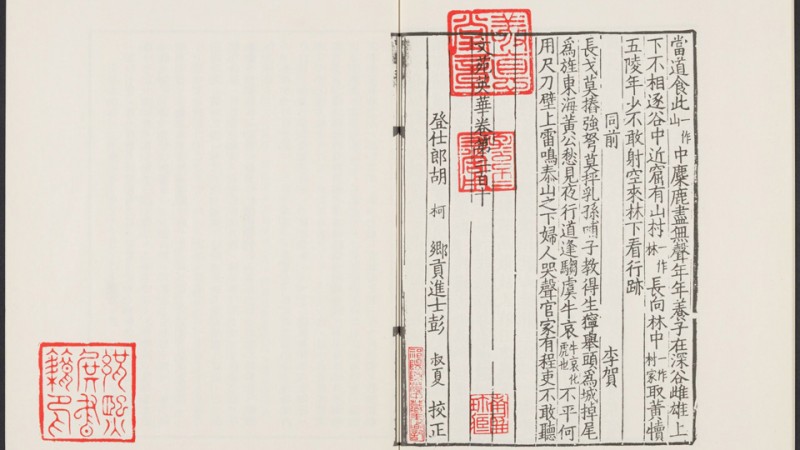 當道食此一作山中麋鹿盡無聲年年養子在深谷雌雄上
下不相逐谷中近窟有山村一作林長向林中一作村家取黃犢
五陵年少不敢射空來林下看行跡
同前 李賀
長戈莫摏強弩莫抨乳孫哺子教得生獰舉頭為城掉尾
為旌東海黃公愁見夜行道逢騶虞牛哀牛哀化虎也不平何
用尺刀壁上雷鳴泰山之下婦人哭聲官家有程吏不敢聽
文苑英華卷第二百十
登仕郎胡 柯 鄉貢進士彭 叔夏 校正
緝熙殿書籍印